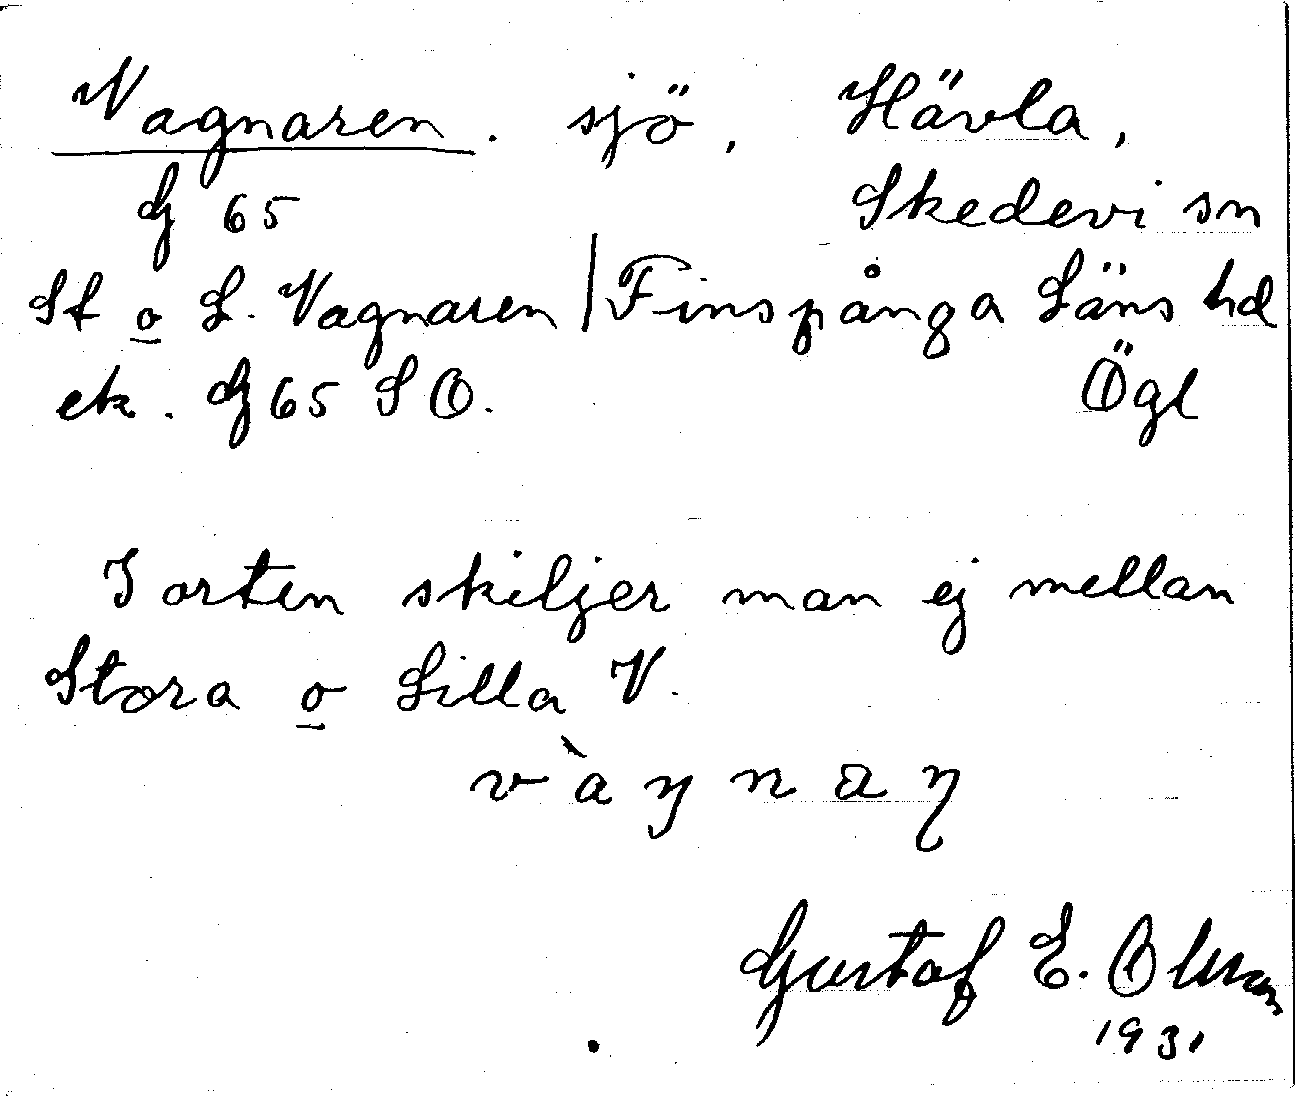 Vagnaren. sjö, Hävla,
G 65 Skedevi sn
St o L. Vagnaren | Finspånga Läns hd
ek. G65 SO. Ögl
I orten skiljer man ej mellan
Stora o Lilla V.
v̀aŋnaŋ
Gustaf E. Olsson
1931